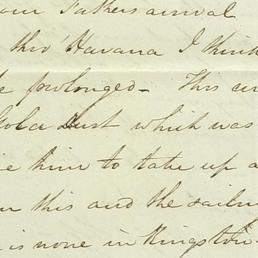 our Fathers arrival
thro' Havana I think
prolonged - This
Gold Dust which was
him to take up a
this and the sailing
is none in Kingston